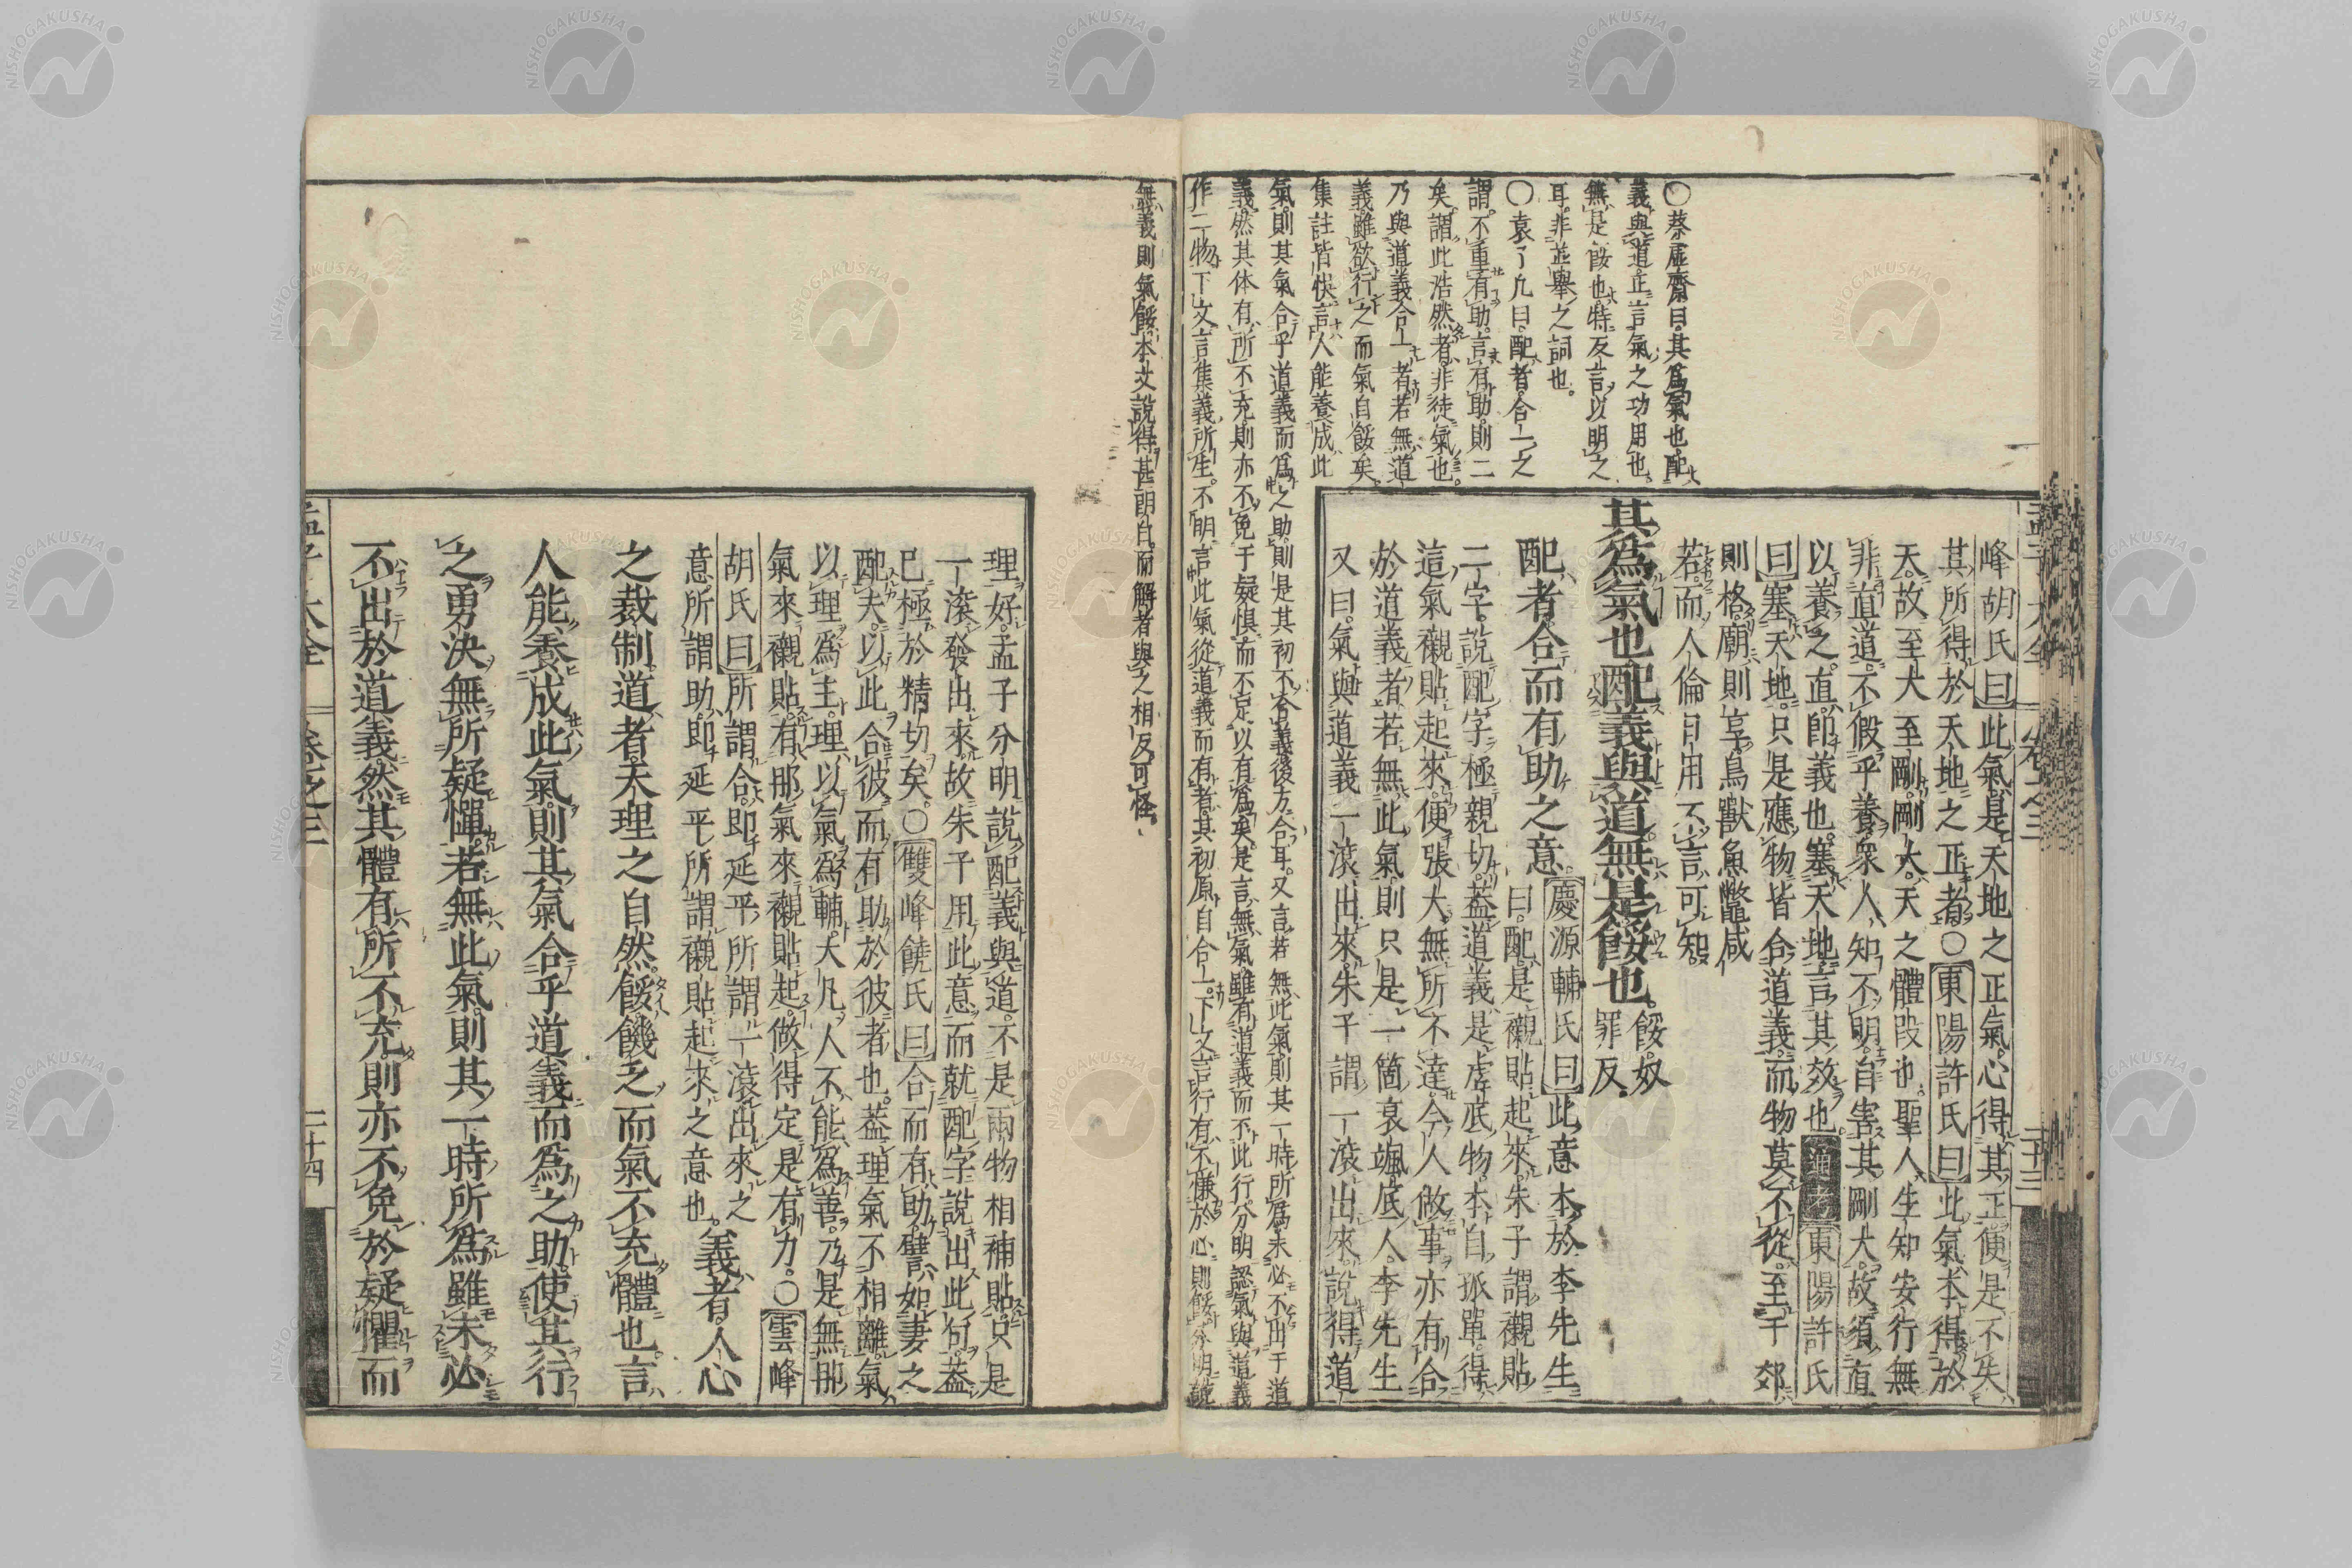 ○蔡虛齋曰。其爲氣也。配
義與道。正言氣之功用也。
無是餒也。特反言以明之
耳。非並舉之詞也。
○袁了凡曰。配者。合一之
謂。不重有助。言有助。則二
矣。謂此浩然者。非徒氣也。
乃與道義合一者。若無道
義雖欲行之而氣自餒矣。
集註皆快言人能養成此
氣。則其氣合乎道義而爲之助。則是其初不合義後方合耳。又言若無此氣。則其一時所爲未必不出于道
義。然其体有所不充。則亦不免于疑惧而不足以有爲矣。是言無氣。雖有道義而不此行。分明認氣與道義
作二物。下文言集義所生。不明言此氣從道義而有者。其初原自合一。下文言行有不慊於心。則餒。分明說
峰胡氏曰此氣是天地之正氣。心得其正便是不失
其所得於天地之正者。○東陽許氏曰此氣本得於
天。故至大至剛。剛大。天之體段也。聖人生知安行無
非直道。不假乎養。衆人知不明。自害其剛大。故須直
以養之。直即義也。塞天地言其效也。通考東陽許氏
曰塞天地。只是應物皆合道義。而物莫不從。至于郊
則格。廟則享。鳥獸魚鼈咸
若。而人倫日用不言可知。
其爲氣也。配義與道。無是餒也。餒。奴罪反。
配者。合而有助之意。慶源輔氏曰此意本於李先生
曰。配是襯貼起來。朱子謂襯貼
二字。說配字極親切。蓋道義是虛底物。本自孤單。得
這氣襯貼起來。便張大無所不達。今人做事亦有合
於道義者。若無此氣。則只是一箇衰颯底人。李先生
又曰。氣與道義一滚出來。朱子謂一滚出來。說得道
無義則氣餒。本文說得甚朗白。而解者與之相反。可怪。
理好。孟子分明說配義與道。不是兩物相補貼。只是
一滚發出來。故朱子用此意而就配字說出此句。蓋
已極於精切矣。○雙峰饒氏曰合而有助。譬如妻之
配夫。以此合彼而有助於彼者也。蓋理氣不相離。氣
以理爲主。理以氣爲輔。大凡人不能爲善。乃是無那
氣來襯貼。有那氣來襯貼起。做得定。是有力。○雲峰
胡氏曰所謂合。即延平所謂一滚出來之
意。所謂助。即延平所謂襯貼起來之意也。義者。人心
之裁制。道者。天理之自然。餒饑乏而氣不充體也。言
人能養成此氣。則其氣合乎道義而爲之助。使其行
之勇決。無所疑憚。若無此氣。則其一時所爲雖未必
不出於道義。然其體有所不充。則亦不免於疑懼而
孟子大全 卷之三 二十四